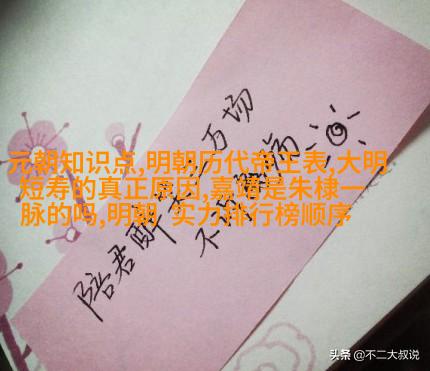 元朝知识点,明朝历代帝王表,大明
短寿的真正原因,嘉靖是朱棣一
脉的吗,明朝 实力排行榜顺序
陪君醉万场
不
头条 @不二大叔说